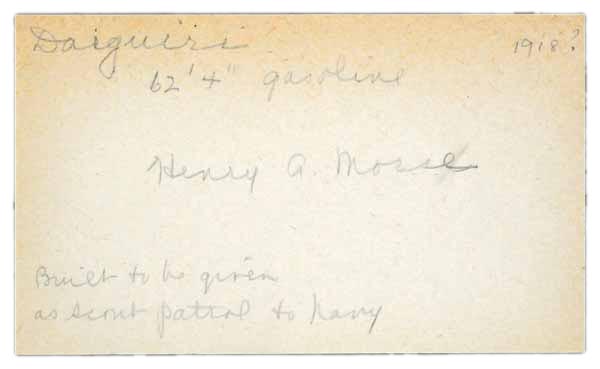 Daiquiri 1918?
62' 4" gasoline
Henry A. Morse
Built to be given
as scout patrol to Navy